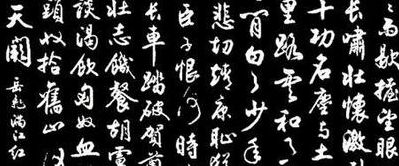 雨歇擡望眼
長嘯壯懷激
十功名塵與土
里路雲和
白了少年
悲切靖康恥
臣子恨何時
長車踏破賀
壯志饑餐胡虜
談渴飲匈奴血
頭收拾舊山河
天闕
岳飛滿江紅